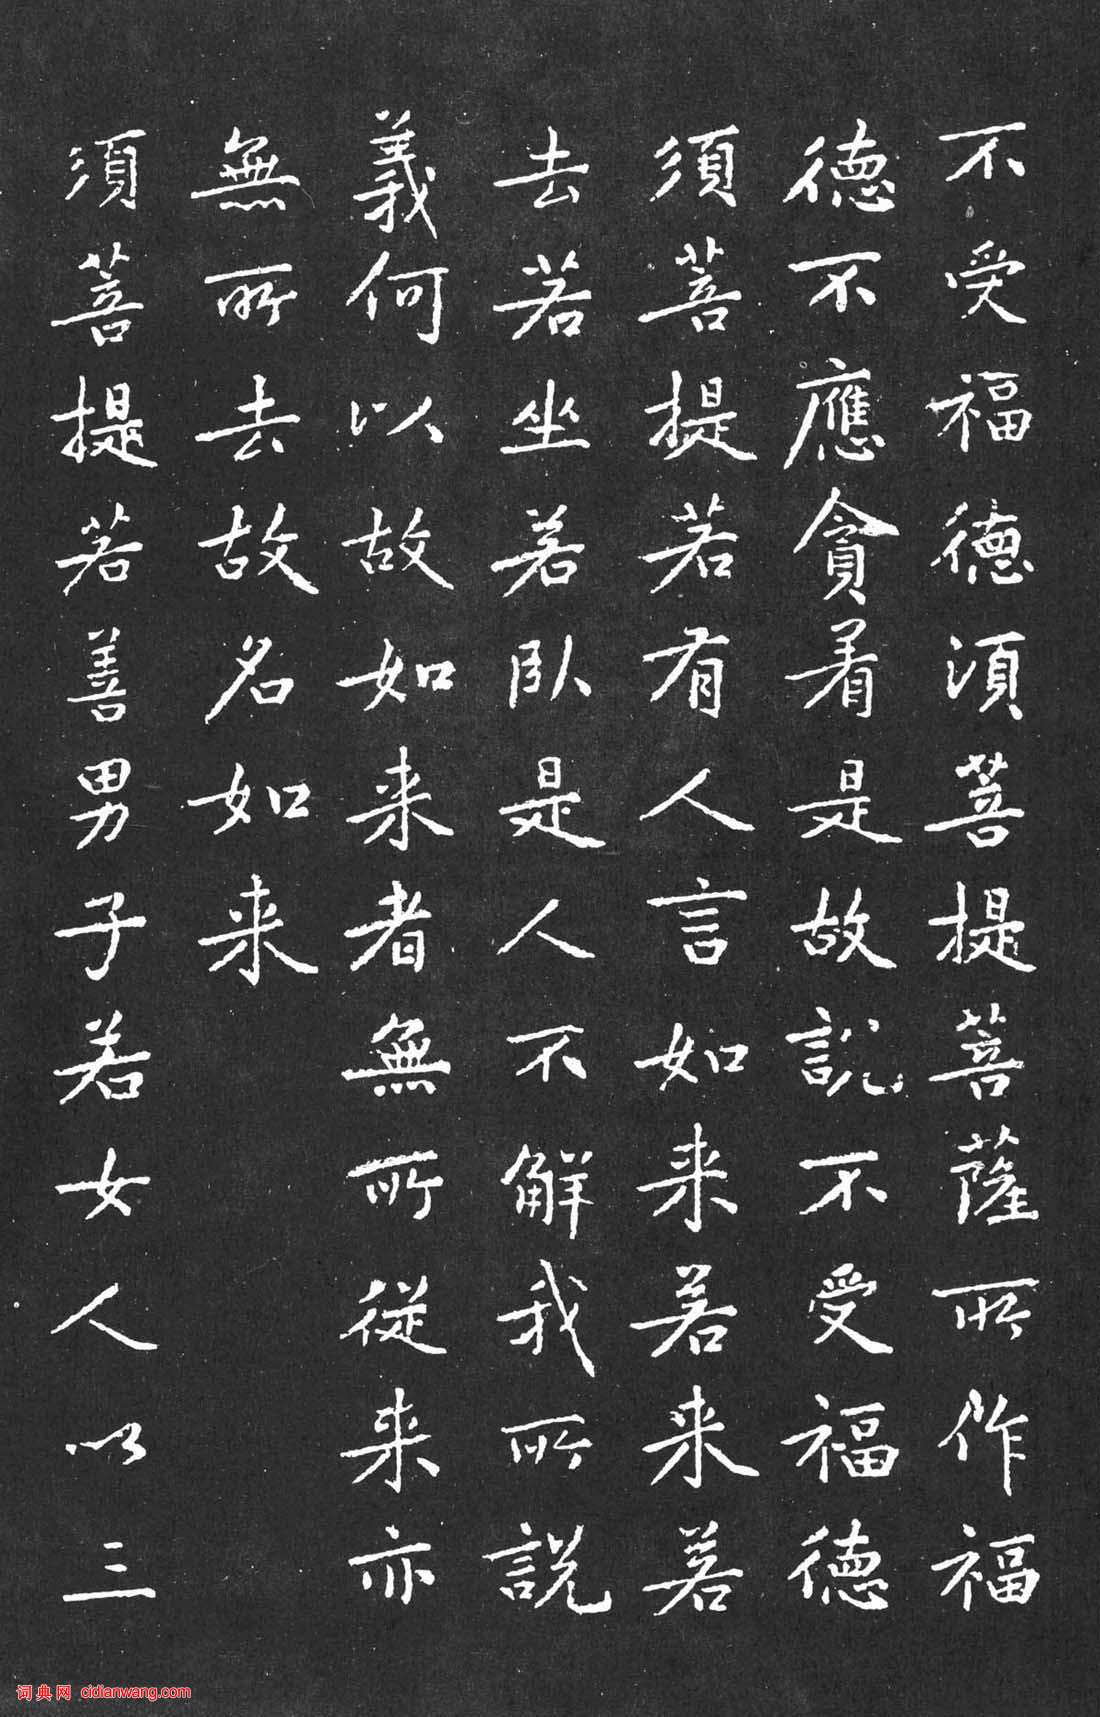 不受福德須菩提菩薩所作福
德不應貪着是故說不受福德
須菩提若有人言如来若来若
去若坐若臥是人不解我所說
義何以故如来者無所從来亦
無所去故名如来
須菩提若善男子若女人以三
词典网 cidianwang.com